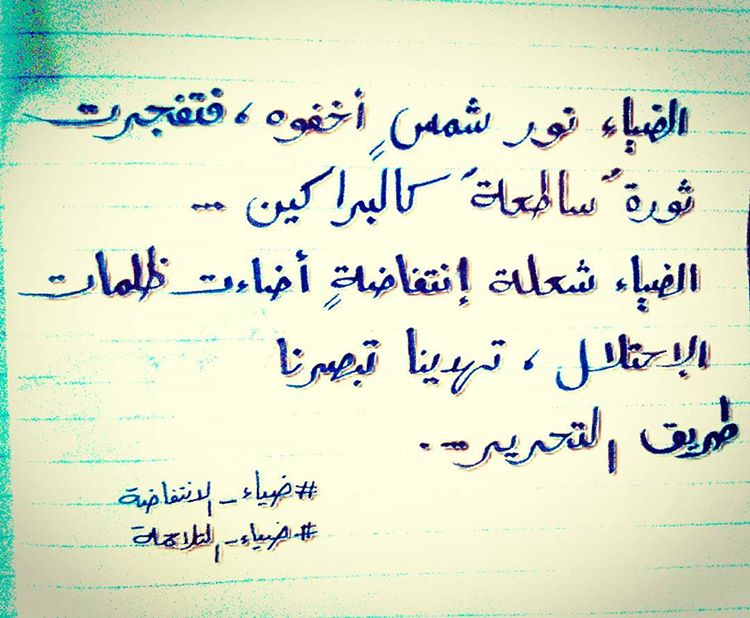 الضياء نور شمسٍ أخفوه ، فتفجرت
ثورةٌ ساطعةٌ كالبراكين ...
الضياء شعلة إنتفاضةٍ أضاءت ظلمات
الإحتلال ، تهدينا تبصرنا
طريق التحرير ...
#ضياء_الانتفاضة
#ضياء_التلاحمة